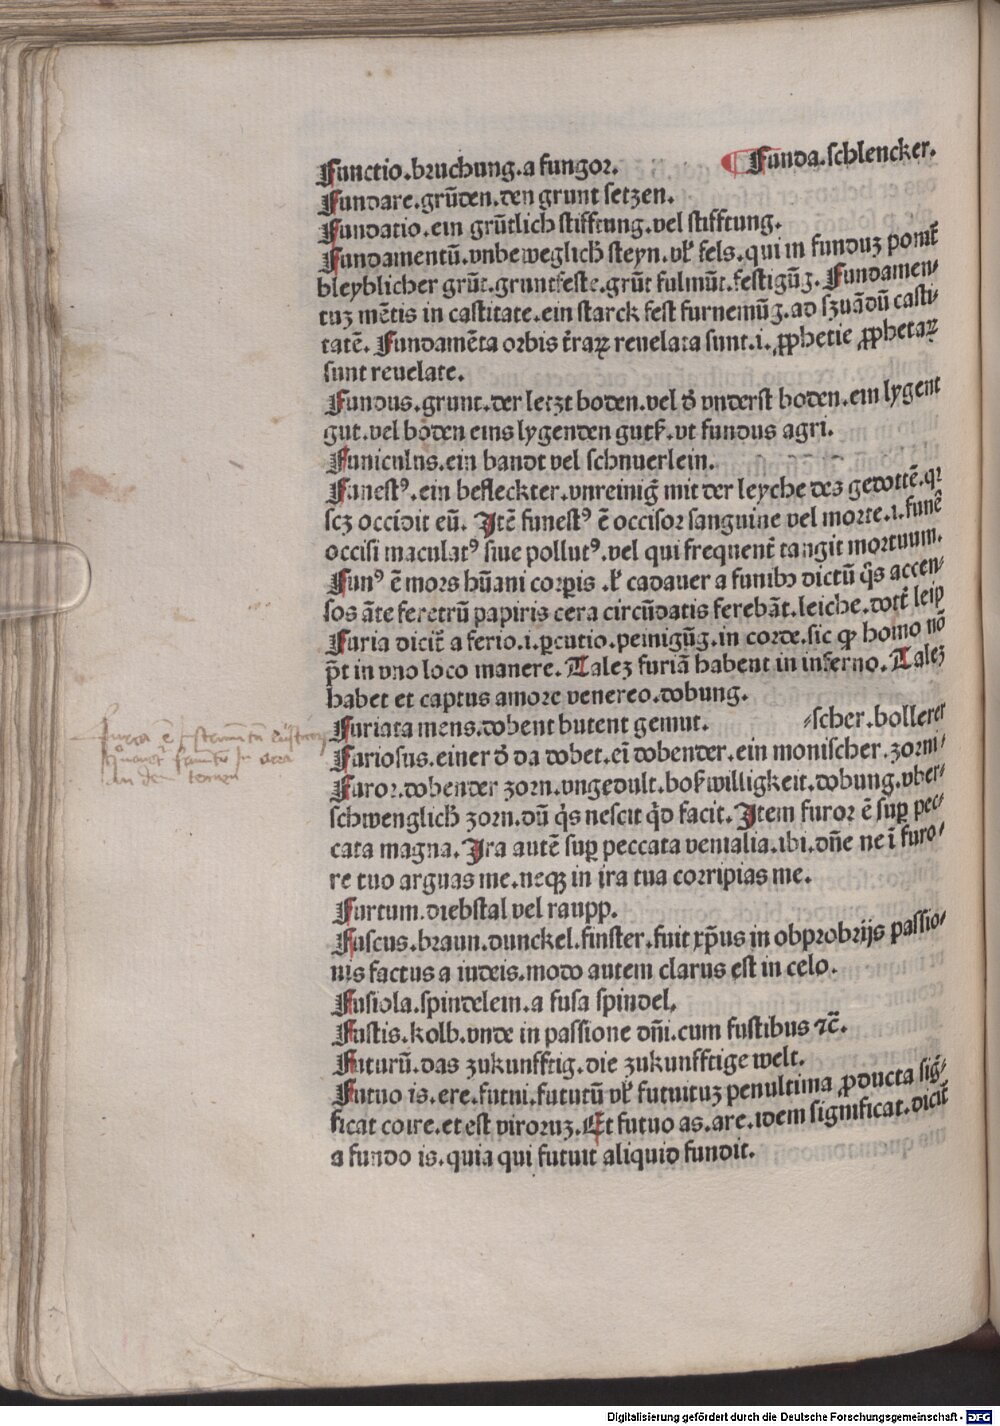 Functio.bruchung.a fungor. Funda.schlencker.
Fundare.grūden.den grunt setzen.
Fundatio.ein grūtlich stifftung.vel stifftung.
Fundamentū.vnbeweglich steyn.vl' fels.qui in funduz ponit̄
bleyblicher grūt.gruntfeste.grūt fulmūt.festigūg. Fundamen⸗
tuz mētis in castitate.ein starck fest furnemūg.ad szuādū casti⸗
tatē. Fundamēta orbis t̄raꝝ reuelata sunt.i.ꝓphetie ꝓphetaꝝ
sunt reuelate.
Fundus.grunt.der letzt boden.vel d̄ vnderst boden.ein lygent
gut.vel boden eins lygenden gutz.vt fundus agri.
Funiculus.ein bandt vel schnuerlein.
Funestꝰ.ein befleckter.vnreiniḡ mit der leyche des gedottē.qꝛ
scz occidit eū. Itē funestꝰ ē occisor sanguine vel morte.i.funē
occisi maculatꝰ siue pollutꝰ.vel qui frequent̄ tangit mortuum.
Funꝰ ē mors hūani corꝑis .l' cadauer a funibꝫ dictū q̄s accen⸗
sos āte feretrū papiris cera circūdatis ferebāt.leiche.dott̄ leip
Furia dicit̄ a ferio.i.ꝑcutio.peinigūg.in corde.sic ꝙ homo nō
p̄t in vno loco manere. Talez furiā habent in inferno. Talez
habet et captus amore venereo.dobung.
Furiata mens.dobent butent gemut. ⸗scher.bollerer
Furiosus.einer d̄ da dobet.eī dobender.ein monischer.zorni⸗
Furor.dobender zorn.vngedult.boßwilligkeit.dobung.vber⸗
schwenglich zorn.dū q̄s nescit q̄d facit. Item furor ē suꝑ pec⸗
cata magna. Ira autē suꝑ peccata venialia.ibi.dn̄e ne ī furo⸗
re tuo arguas me.neqꝫ in ira tua corripias me.
Furtum.diebstal vel raupp.
Fuscus.braun.dunckel.finster.fuit xp̄us in obprobrijs passio⸗
nis factus a iudeis.modo autem clarus est in celo.
Fusiola.spindelein.a fusa spindel.
Fustis.kolb.vnde in passione dn̄i.cum fustibus ⁊c̄.
Futurū.das zukunfftig.die zukunfftige welt.
Futuo is.ere.futui.fututū vl' futuituz penultima ꝓducta siḡ⸗
ficat coire.et est viroruz. Et futuo as.are.idem significat.dicit̄
a fundo is.quia qui futuit aliquid fundit.
furca ē
in de
Digitalisierung gefördert durch die Deutsche Forschungsgemeinschaft - DFG